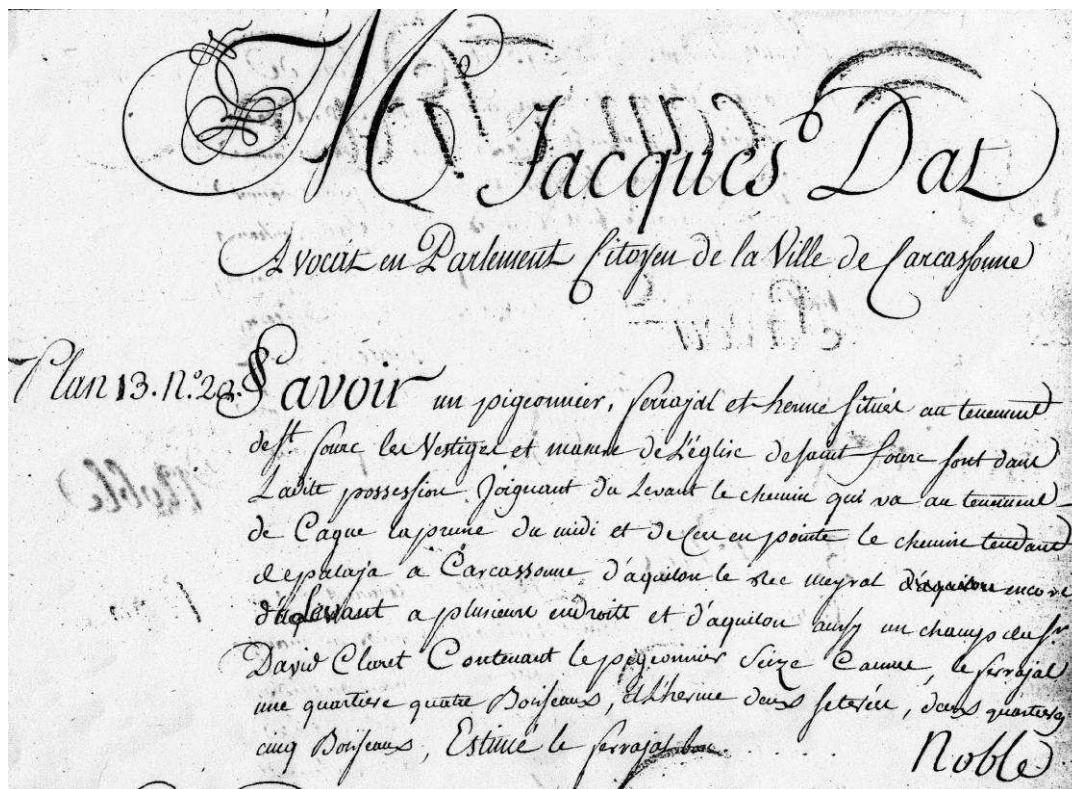 M. Jacques Dat
Avocat en Parlement Citoyen de la Ville de Carcassonne
Plan 13. N.º 20. Savoir un pigeonnier, ferrajal et herme situés au tenement
de St. fourc les Vestiges et mazure de L'église de saint fourc sont dans
Ladite possession. Joignant du Levant le chemin qui va au tenement
de Cague laprune du midi et de Cers en pointe le chemin tendant
de palaja à Carcassonne d'aquilon le Rec meyral d'aquilon encore
Levant a plusieurs endroits et d'aquilon aussy un champ du Sr
David Claret Contenant le pigeonnier Seize Cannes, le ferrajal
une quartiere quatre Boisseaux, et L'herme deux seterées, deux quartieres
cinq Boisseaux, Estimé le ferrajal bon.
Noble